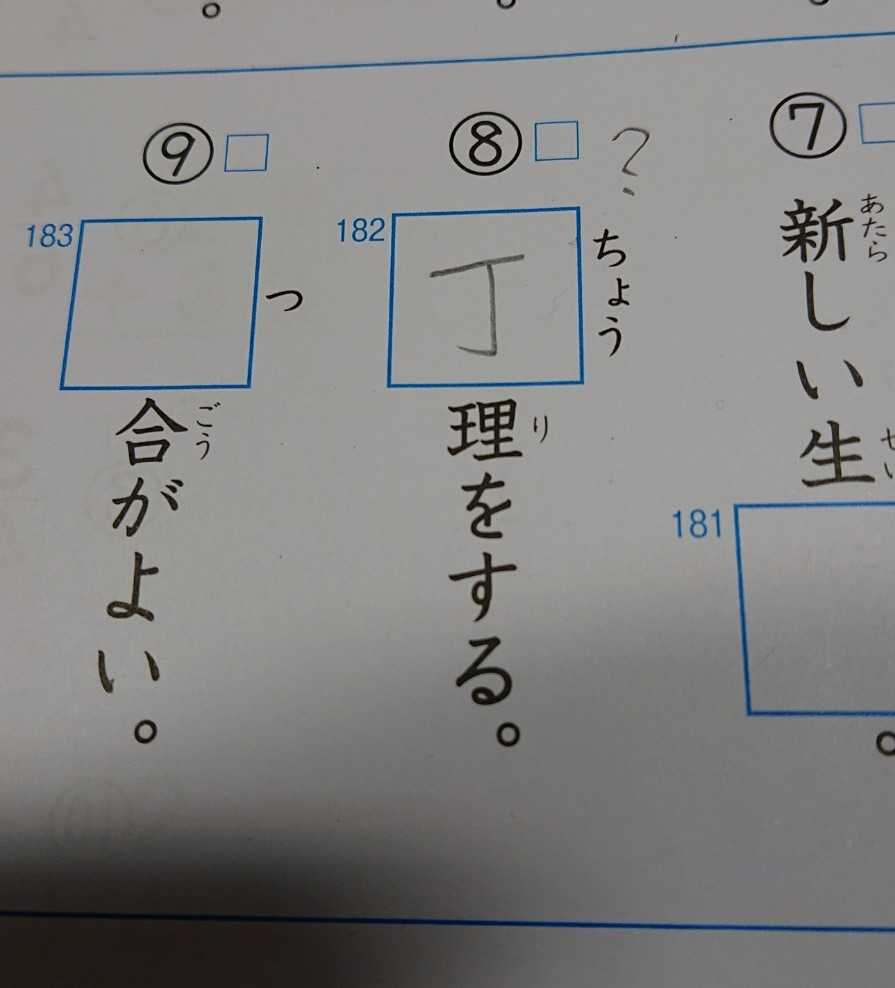 ⑦
新しい生
あたら
せい
181
。
⑧
?
182
丁理をする。
ちょう
り
⑨
183
合がよい。
つ
ごう